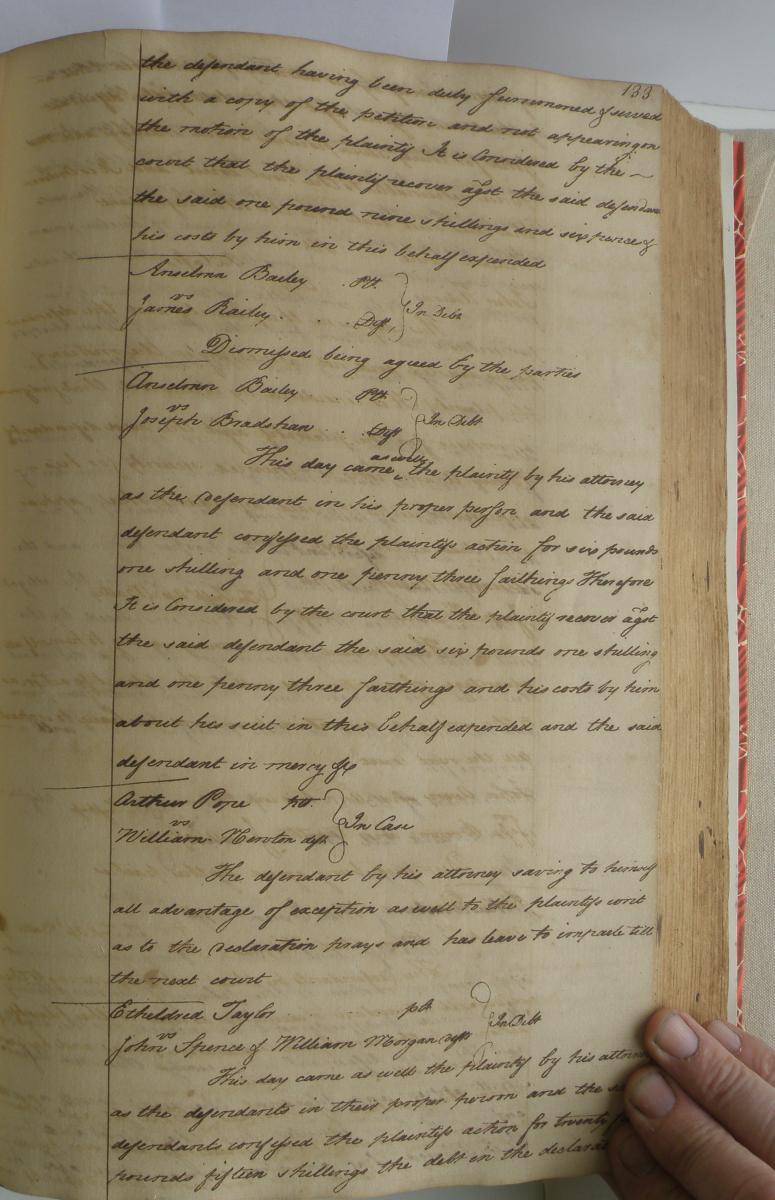 133
the defendant having been duly summoned & served
with a copy of the petition and not appearing on
the motion of the plaintif It is Considered by the
court that the plaintif recover agst the said defendant
the said one pound nine shillings and six pence &
his costs by him in this behalf expended
Anselmn Bailey Plt.
vs
James Bailey Deft, In Debt
Dismissed being agreed by the parties
Anselmn Bailey Plt.
vs
Joseph Bradshaw Deft In Debt
This day came as well the plaintif by his attorney
as the defendant in his proper person and the said
defendant confessed the plaintifs action for six pounds
one shilling and one penny three farthings Therefore
It is Considered by the court that the plaintif recover agst
the said defendant the said six pounds one shilling
and one penny three farthings and his costs by him
about his suit in this behalf expended and the said
defendant in mercy &c
Arthur Pope plt.
vs
William Newton deft. In Case
The defendant by his attorney saving to himself
all advantage of exception as well to the plaintifs writ
as to the declaration prays and has leave to imparle till
the next court
Etheldred Taylor plt
vs
John Spence & William Morgan defts In Debt
This day came as well the plaintif by his
as the defendants in their proper person and the
defendants confessed the plaintifs action for twenty
pounds fifteen shillings the debt in the